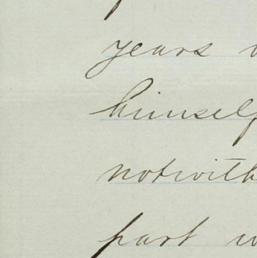 years
himself
notwith
part